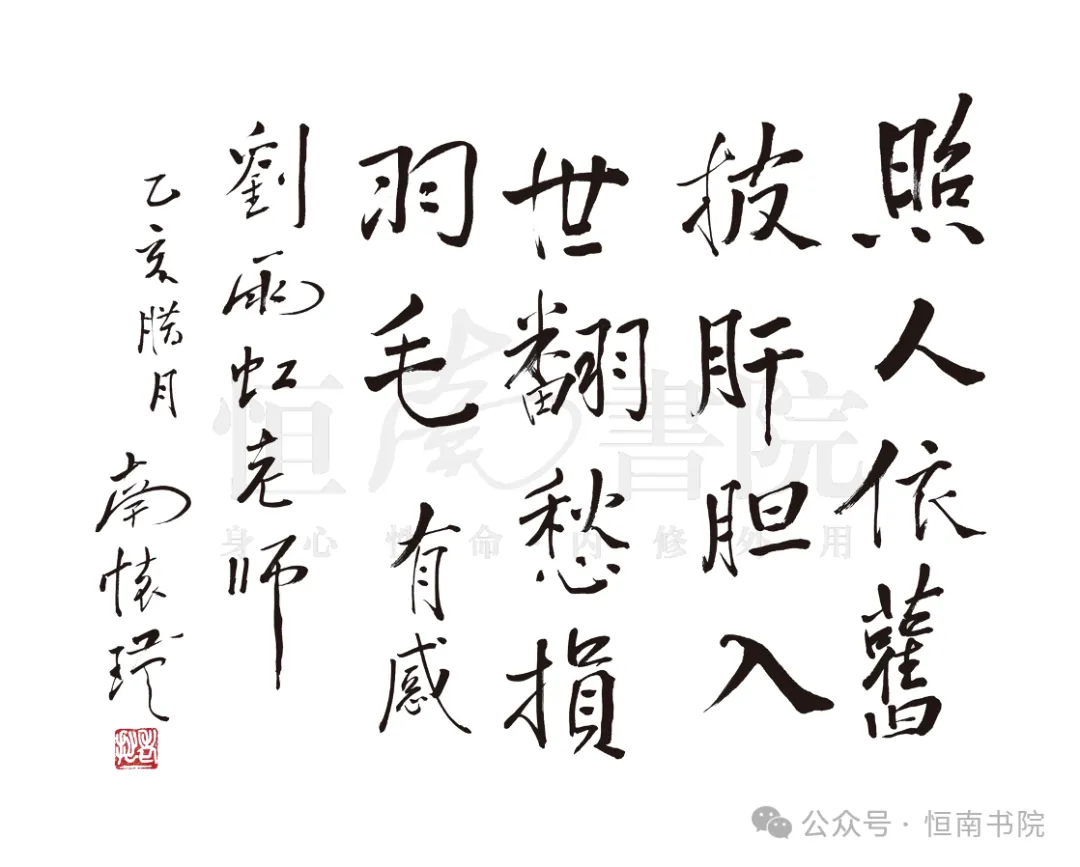 照人依舊
披肝胆入
世翻愁損
羽毛 有感
劉雨虹老師
乙亥腊月
南懷瑾
恒南書院
身心性命 内修外用
公众号 · 恒南书院